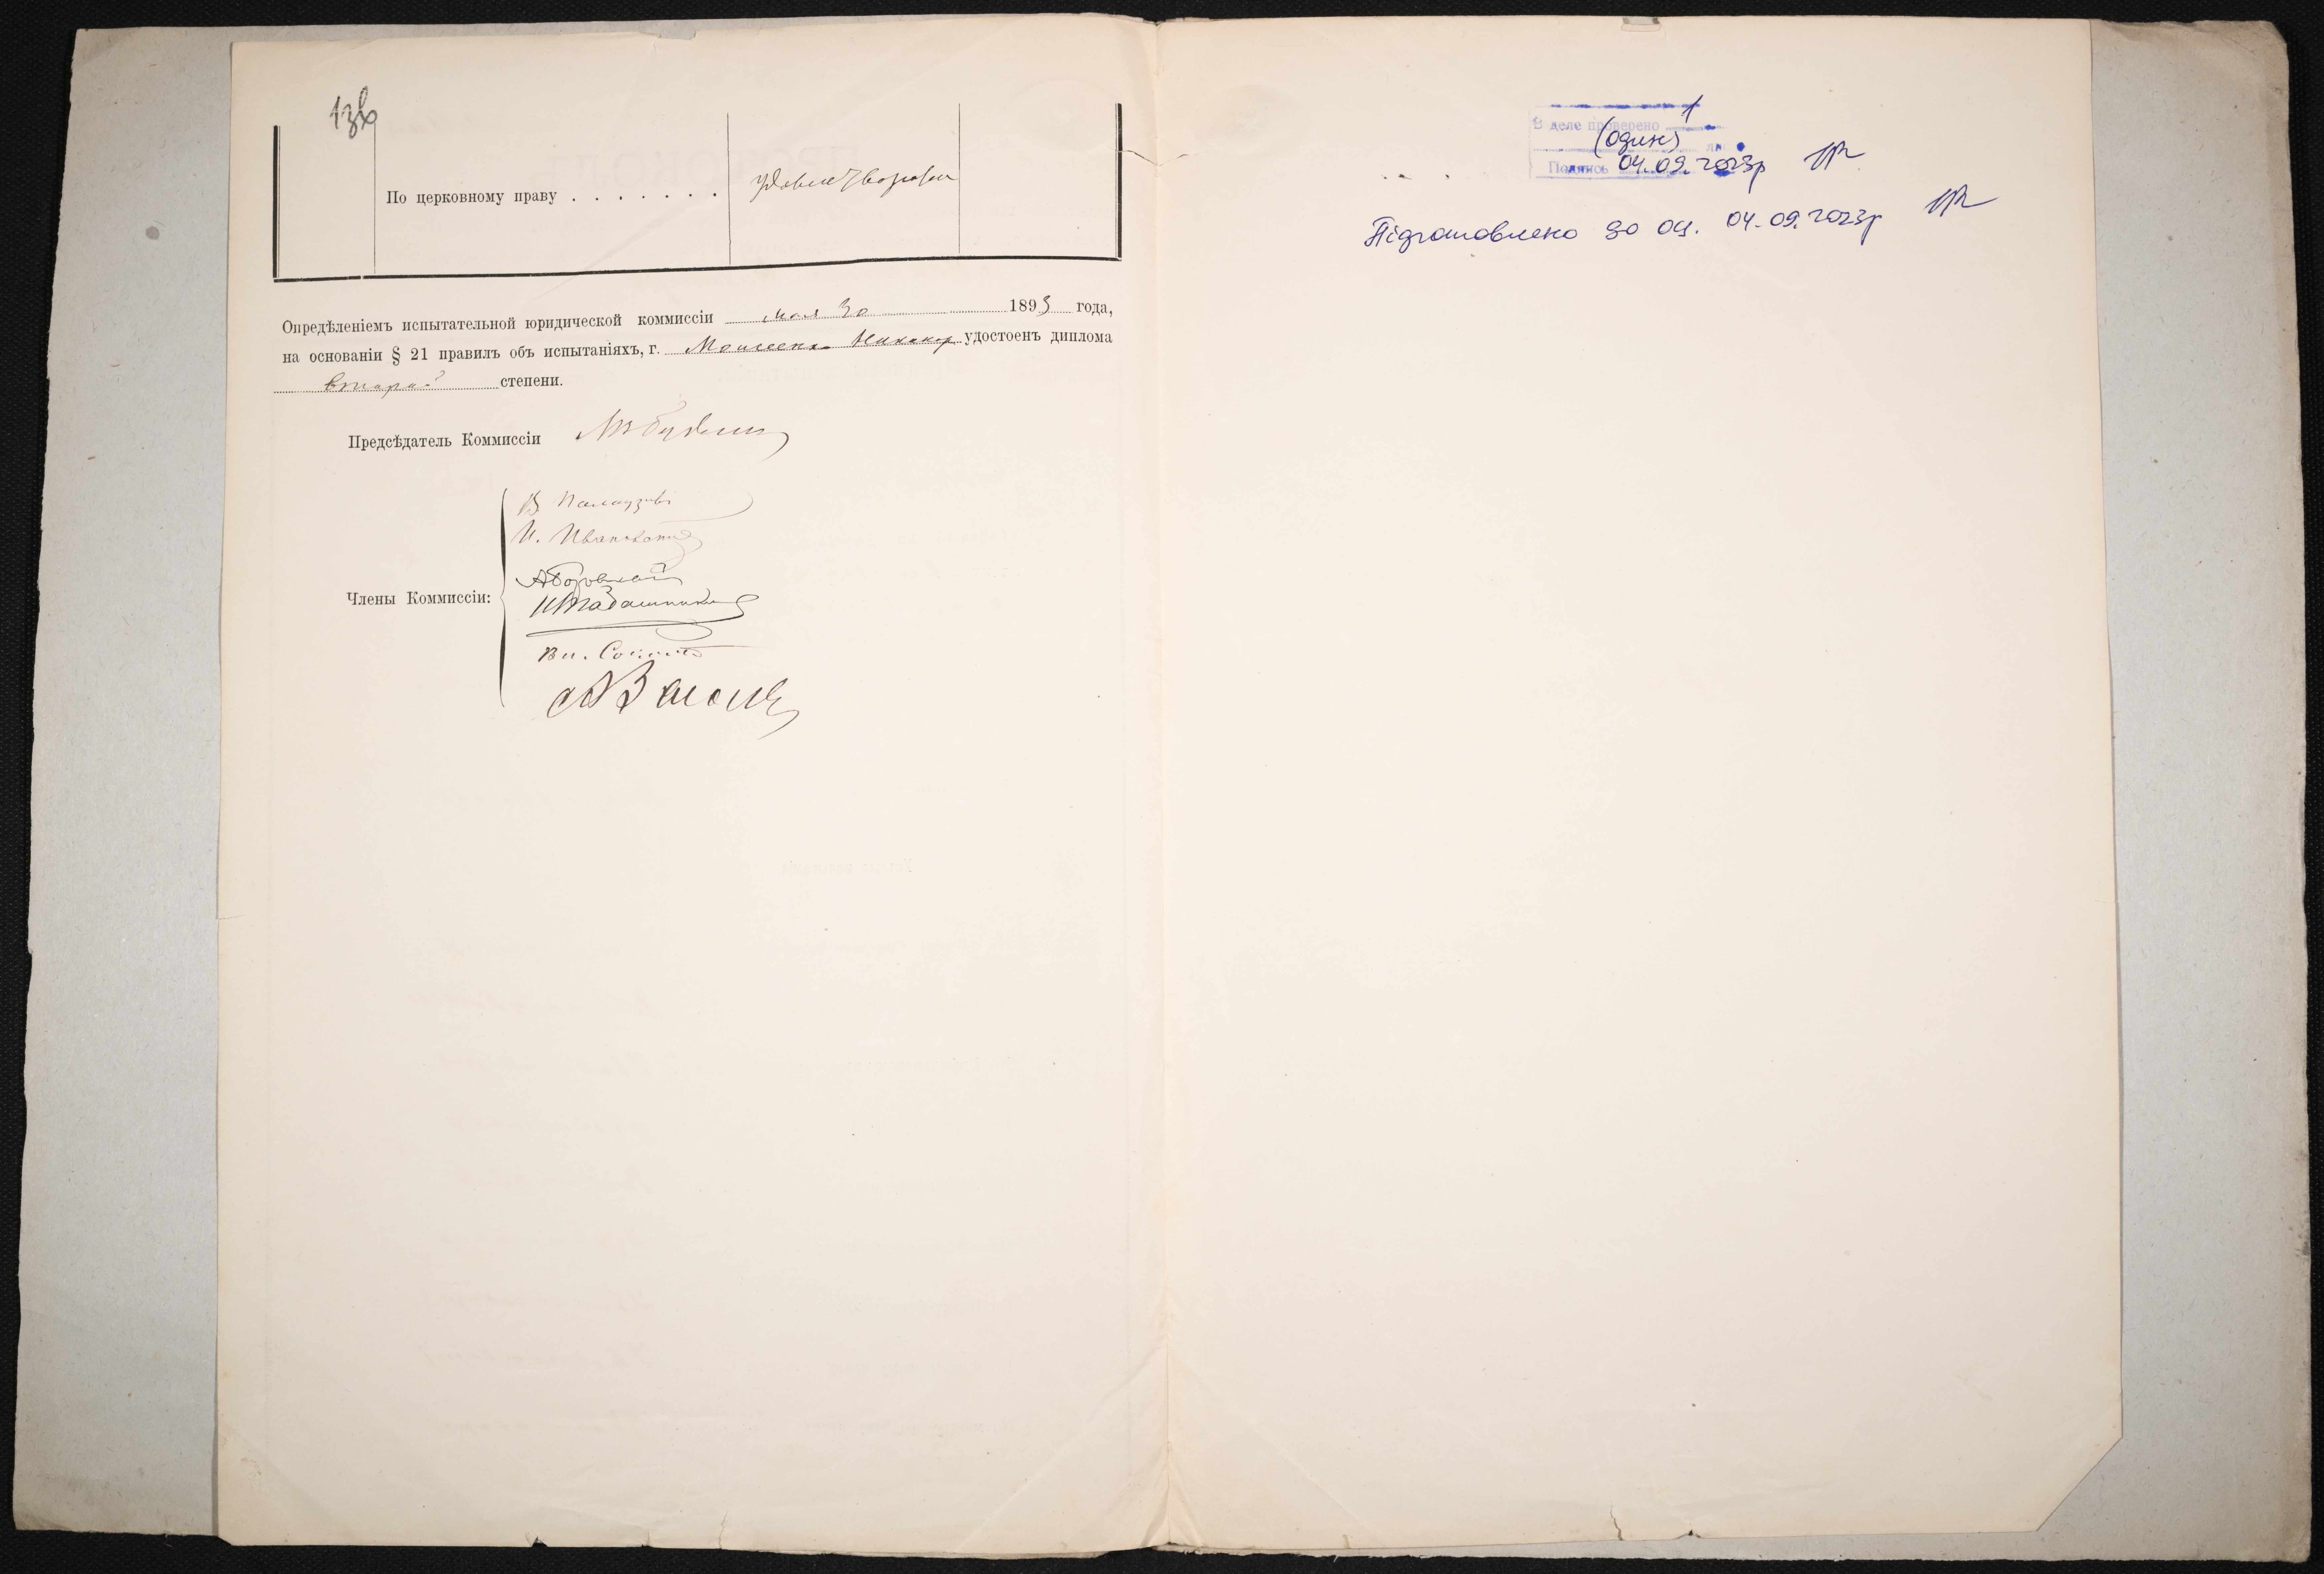 1зв
По церковному праву . . . . . . . удовлетворительно
Опредѣленіемъ испытательной юридической коммиссіи мая 30 1893 года,
на основаніи § 21 правилъ объ испытаніяхъ, г. Моисеенко Никаноръ удостоенъ диплома
второй степени.
Предсѣдатель Коммиссіи
В.
И. Ивановскій
А Боровской
И Табашниковъ
Члены Коммиссіи:
Вл.
В деле проверено 1
(один)
Подпись 04.09.2023р
Підготовлено до оц. 04.09.2023р